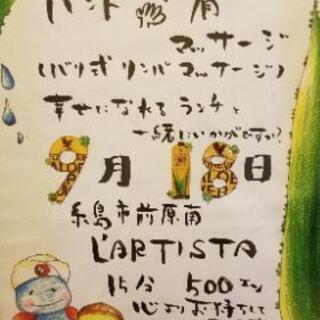 ハンド
マッサージ
(バリ式リンパマッサージ)
幸せになれるランチと
一緒にいかがですか?
9月18日
糸島市前原南
L'ARTISTA
15分 500エン
心よりお待ちして